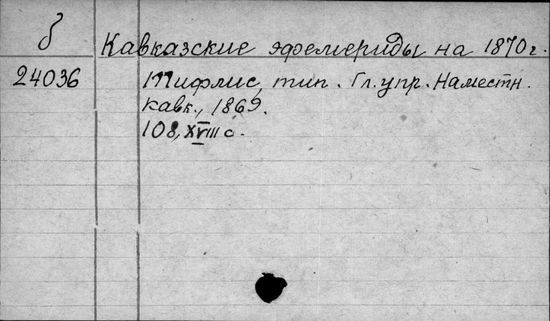 б
Кавказские эфемериды на 1870 г.
24036
Тифлис, тип. Гл. упр. Наместн.
кавк., 1869.
108, XVIII с.